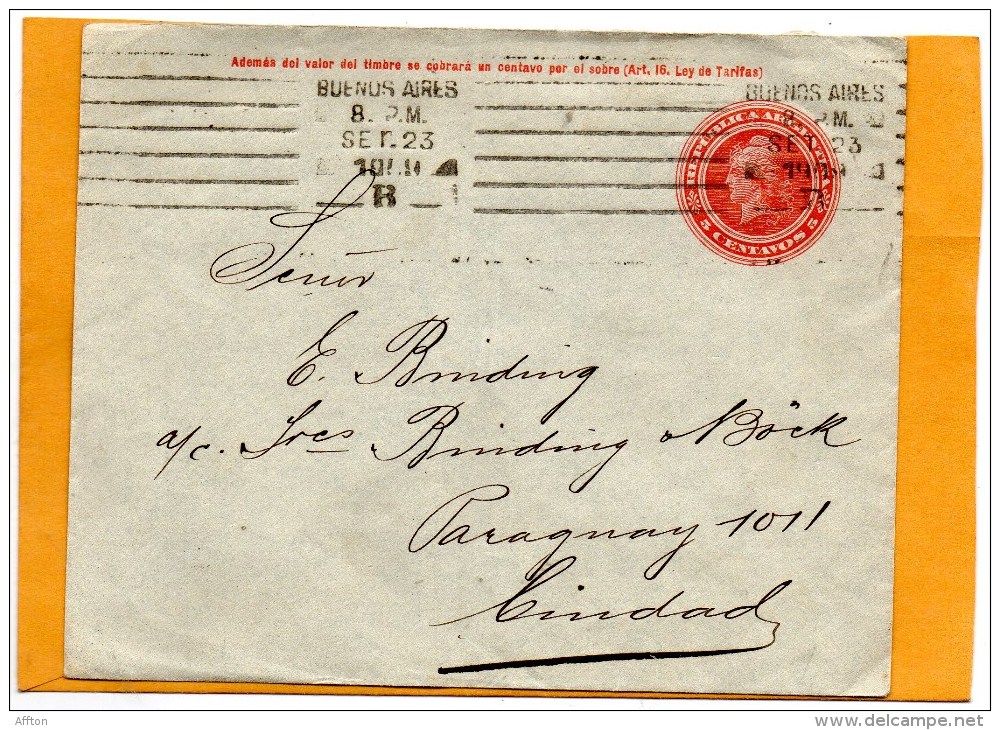 Además del valor del timbre se cobrará un centavo por el sobre (Art. 16. Ley de Tarifas)
BUENOS AIRES
8. P.M.
SET. 23
B
BUENOS AIRES
8. P.M.
SET. 23
B
REPUBLICA ARGENTINA
5 CENTAVOS 5
Señor
E. Binding
a/c. Sres Binding & Böck
Paraguay 1011
Ciudad
Affton
delcampe.net